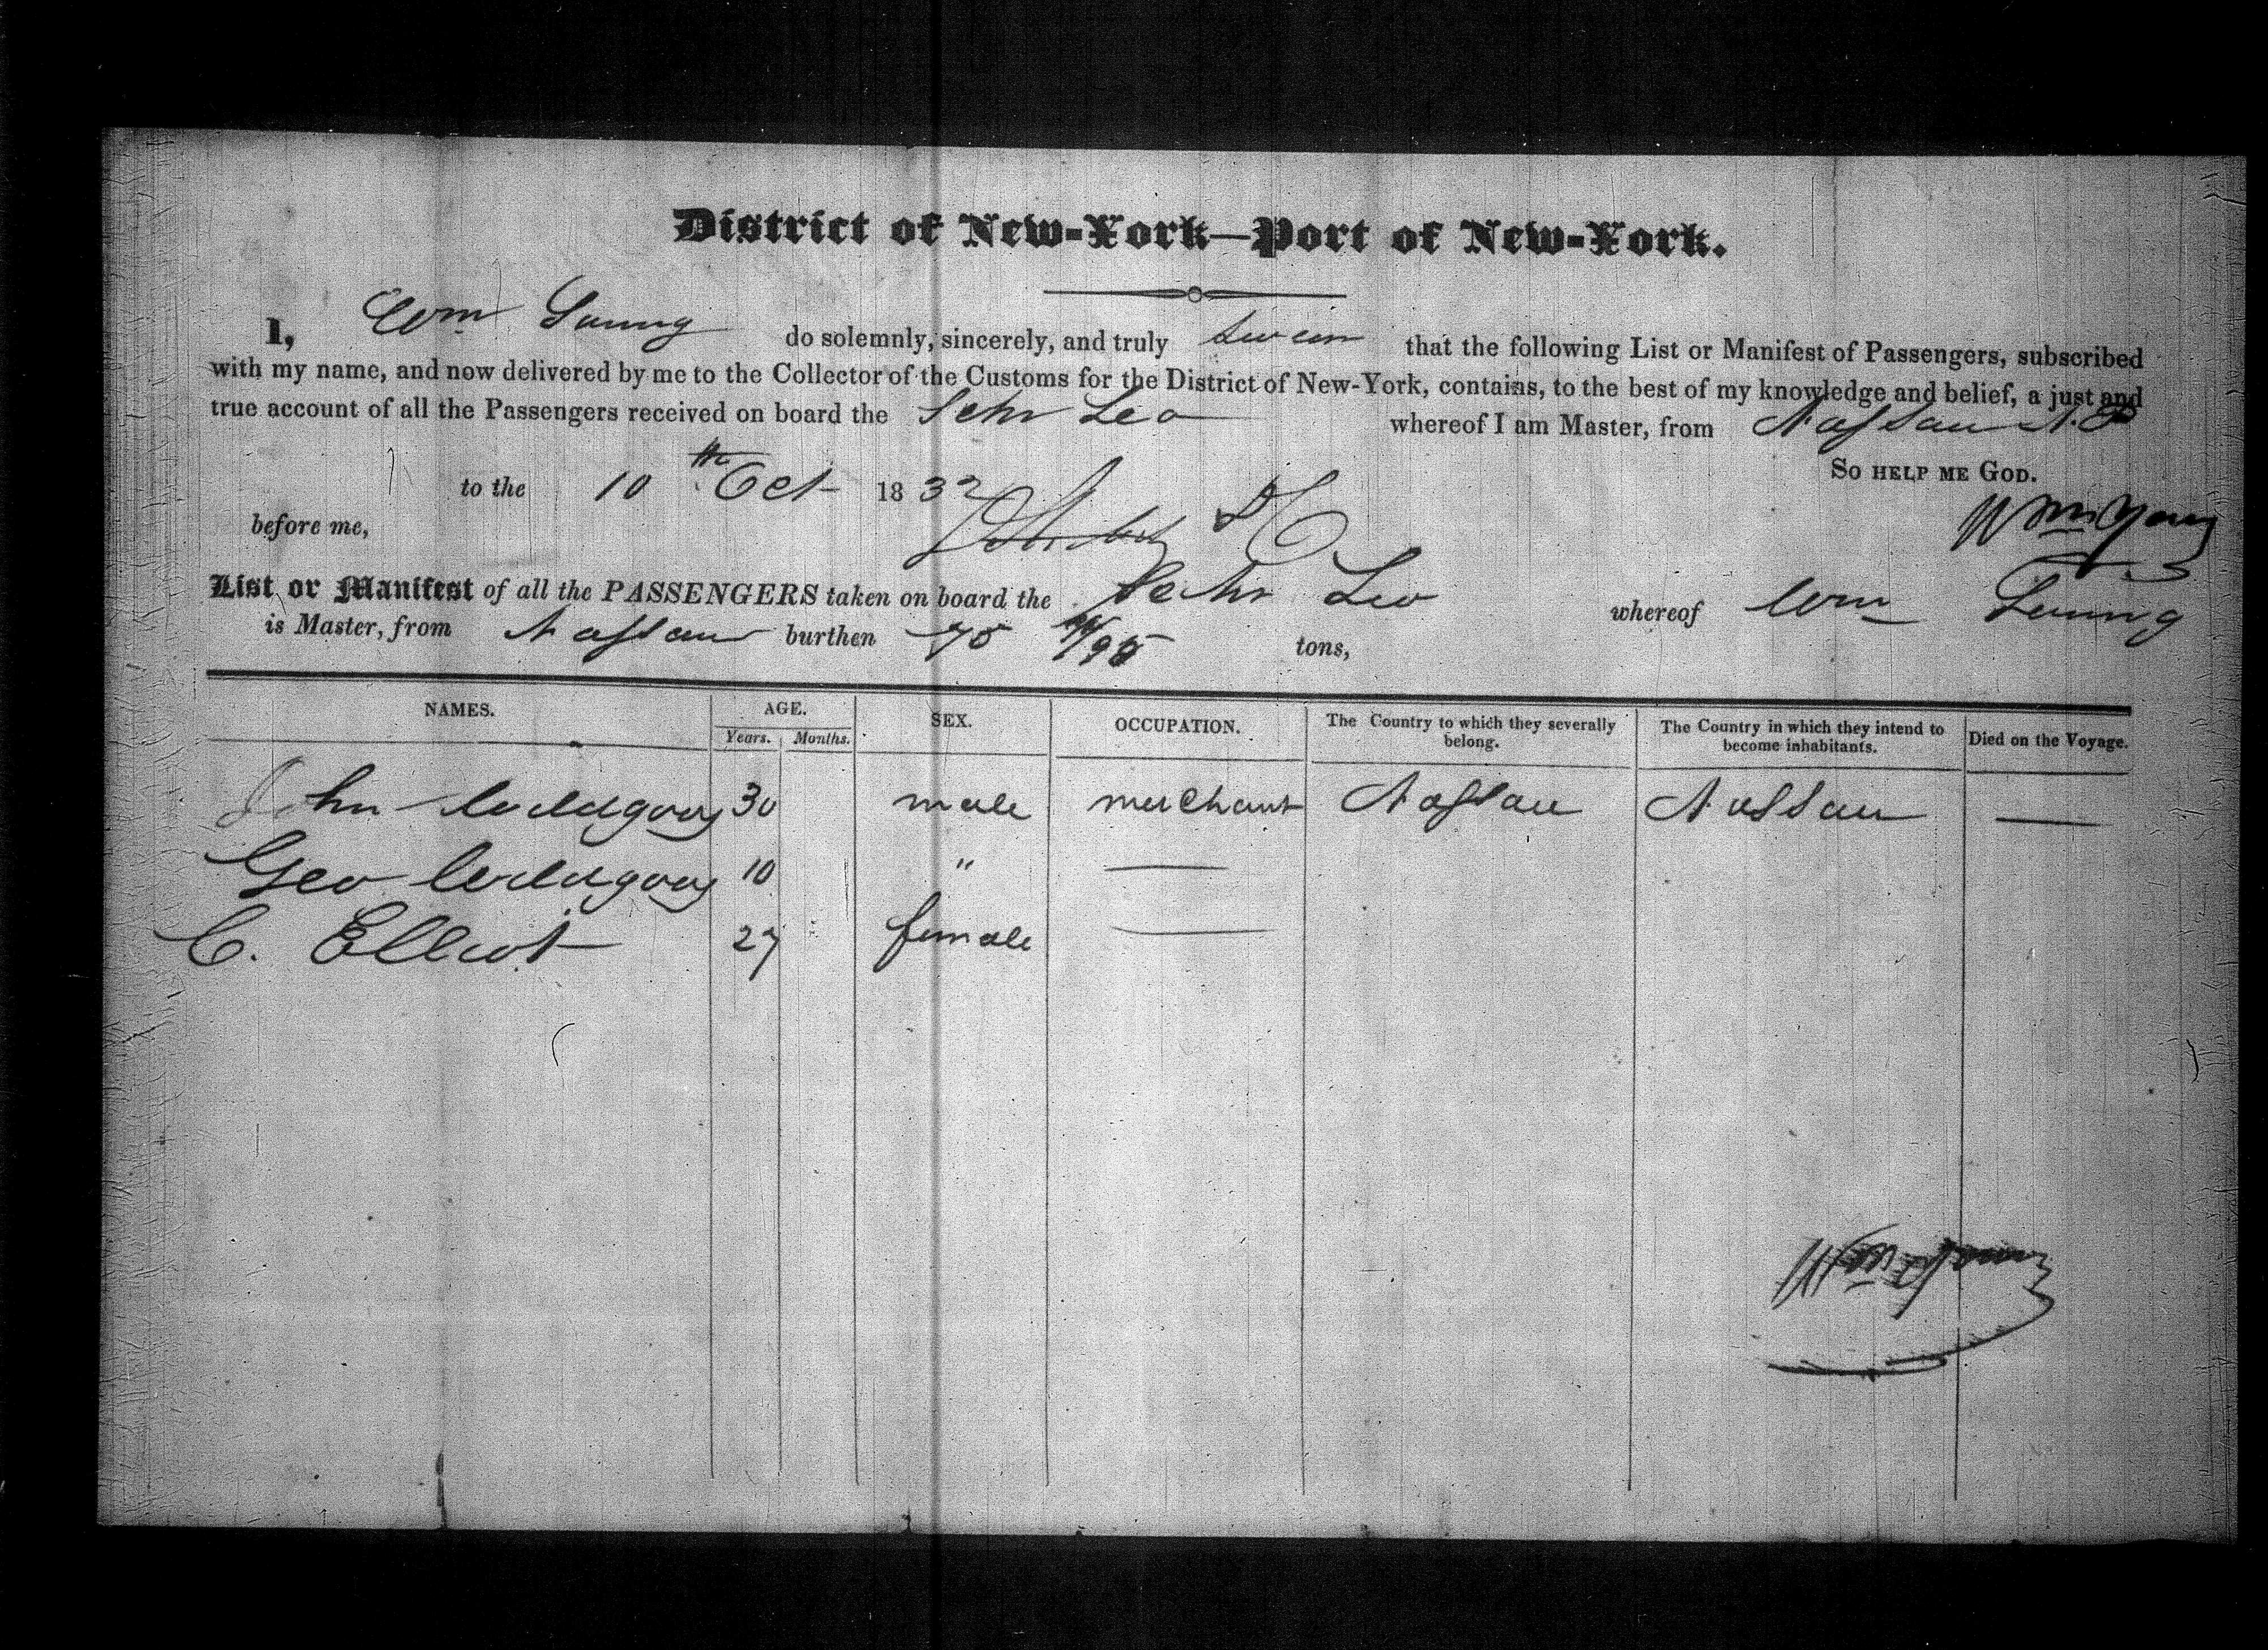 District of New-York—Port of New-York.
I, Wm Young do solemnly, sincerely, and truly swear that the following List or Manifest of Passengers, subscribed
with my name, and now delivered by me to the Collector of the Customs for the District of New-York, contains, to the best of my knowledge and belief, a just and
true account of all the Passengers received on board the Schr Leo whereof I am Master, from Nassau N.P
So help me God.
to the 10th Oct 1832
Wm Young
before me,
List or Manifest of all the PASSENGERS taken on board the Schr Leo whereof Wm Young
is Master, from Nassau burthen 75 /95 tons,
NAMES. AGE. SEX. OCCUPATION. The Country to which they severally belong. The Country in which they intend to become inhabitants. Died on the Voyage.
Years. Months.
John 30 male merchant Nassau Nassau —
Geo 10 " —
C. Elliot 27 female —
Wm Young